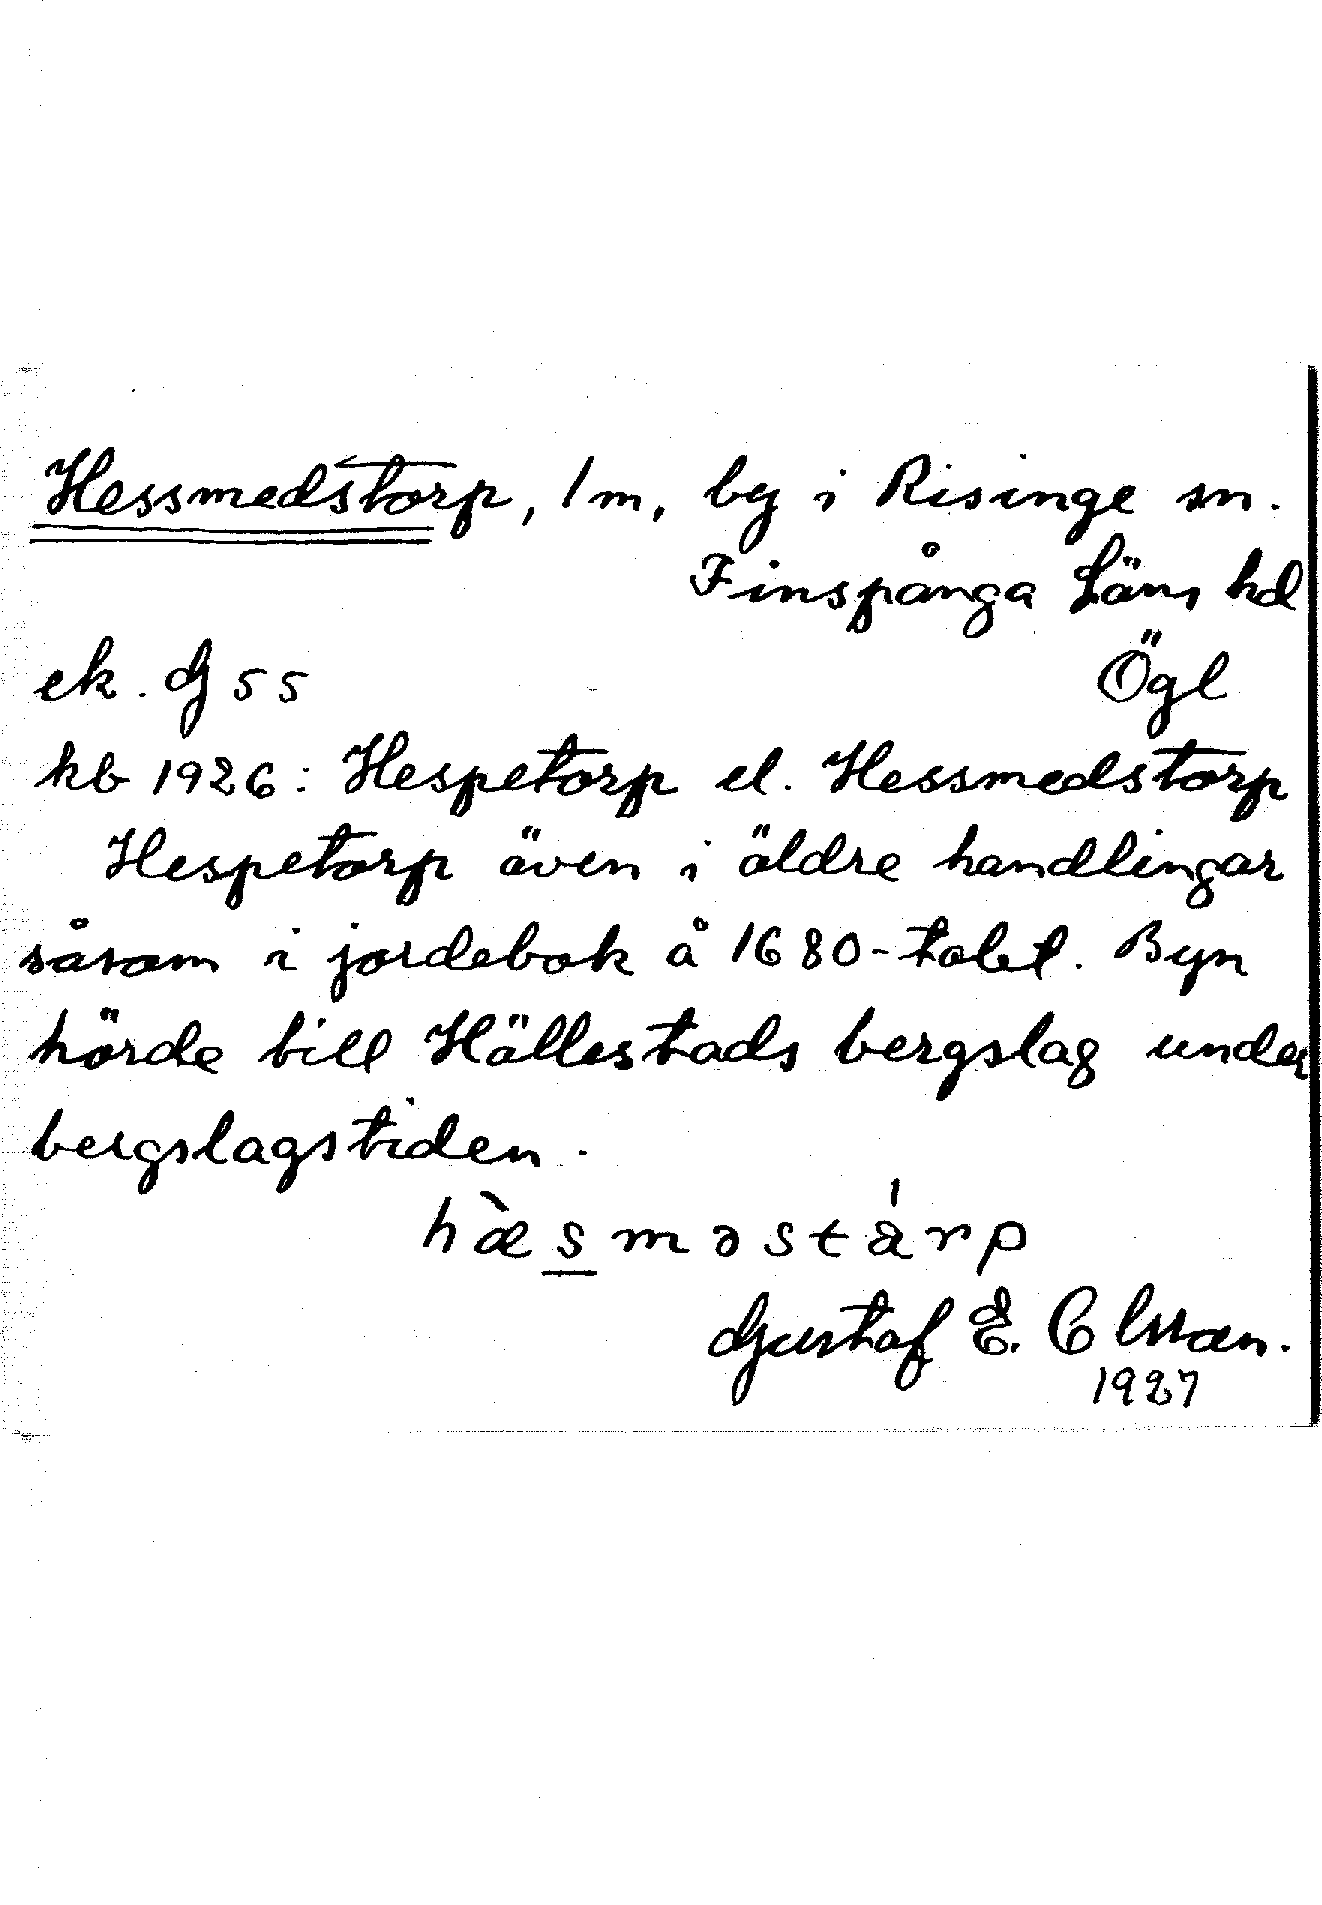 Hessmedstorp, 1 m, by i Risinge sn.
Finspånga Läns hd
ek. G 55 Ögl
kb 1926: Hespetorp el. Hessmedstorp
Hespetorp även i äldre handlingar
såsom i jordebok å 1680-talet. Byn
hörde till Hällestads bergslag under
bergslagstiden.
hæ̀sməstárp
Gustaf E. Olsson.
1927